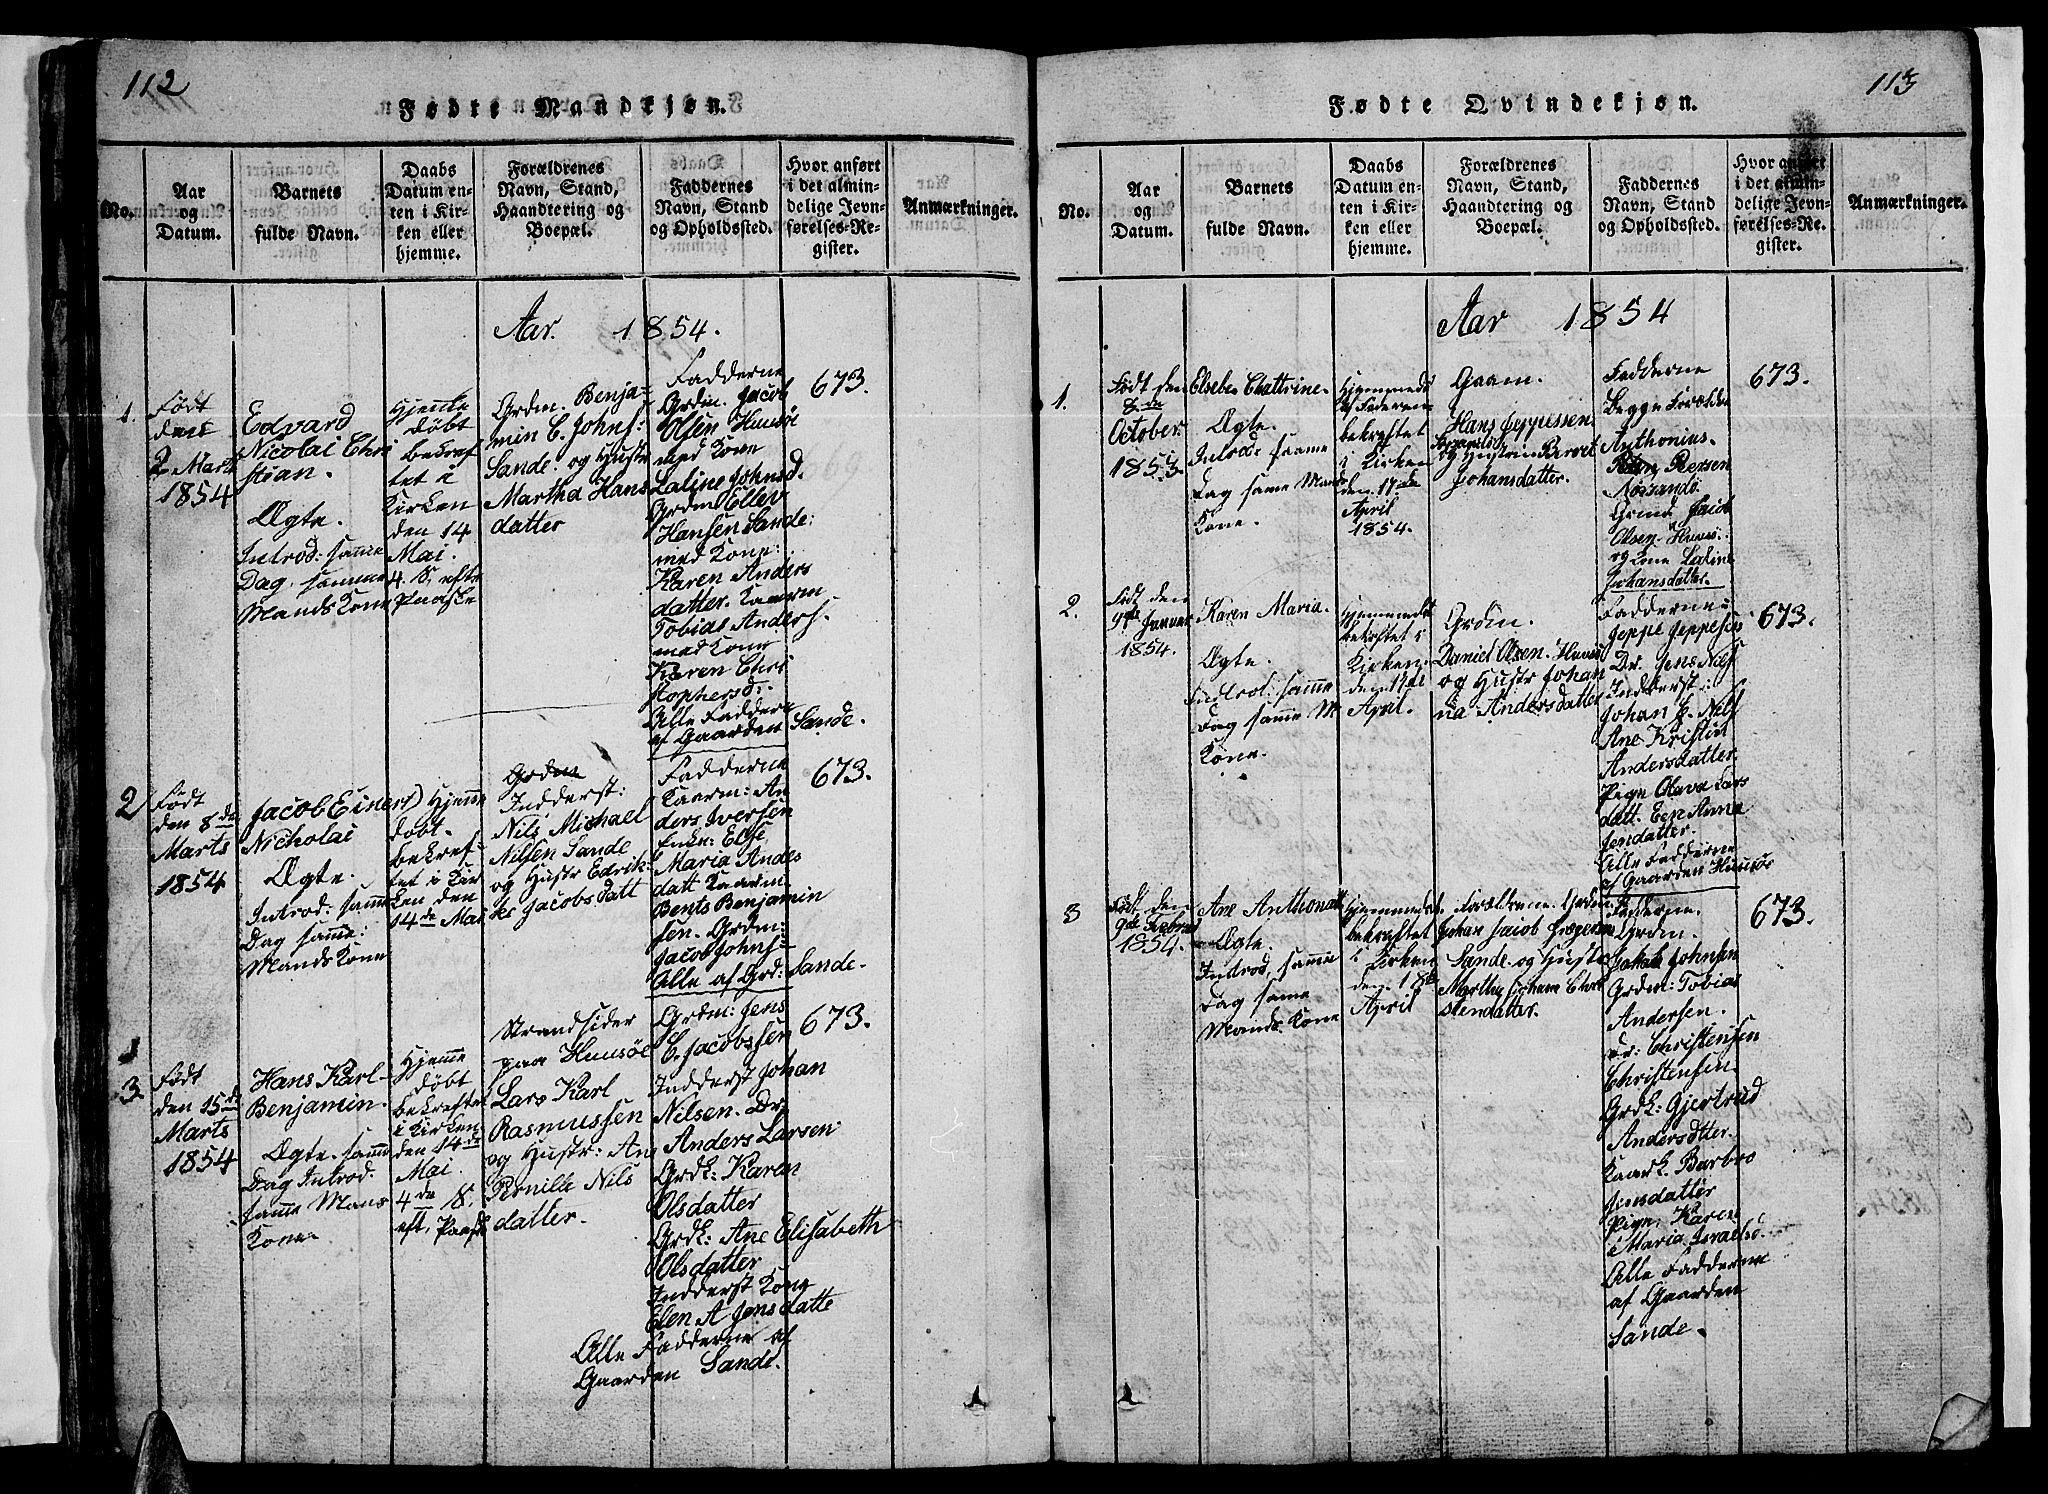 112
Fødte Mandkjøn.
No.
Aar
og
Datum.
Barnets
fulde Navn.
Daabs
Datum en-
ten i Kir-
ken eller
hjemme.
Forældrenes
Navn, Stand,
Haandtering og
Boepæl.
Faddernes
Navn, Stand
og Opholdssted.
Hvor anført
i det almin-
delige Jevn-
førelses-Re-
gister.
Anmærkninger.
Aar. 1854.
1.
Født
den
2 Marts
1854
Edvard
Nicolai Chri
stian.
Ægte.
Introd: samme
Dag. samme
Mands Kone
Hjemme
døbt
bekræf
tet i
Kirken
den 14
Mai.
4. S. efter
Paaske
Grdm. Benja-
min C. Johns-
Sande. og Hustr
Martha Hans
datter
Fadderne
Grdm. Jacob
Olsen Huusöe
med Kone
Laline Johnsd.
Grdm Eller
Hansen Sande:
med Kone:
Karen Anders
datter. Kaarm
Tobias Anders.
med Kone
Karen Chri
stophersd:
Alle Faddere
af Gaarden Sande.
673.
2
Født
den 8de
Marts
1854
Jacob Einert
Nicholai
Ægte.
Introd: samme
Dag samme:
Mands Kone
Hjemme
døbt.
bekræf-
tet i Kir
ken den
14de Mai
Grdm
Inderst:
Nils Michael
Nilsen Sande
og Hustr Edrik-
ke Jacobsdatt
Fadderne
Kaarm: An
ders Iversen
Enkn: Else
Maria Anders
datt Kaarm.
Bents Benjamin
sen. Grdm:
Jacob Johns-
Alle af Grd: Sande.
673.
3.
Født
den 15de
Marts
1854
Hans Karl-
Benjamin.
Ægte. samme
Dag Introd.
samme Mans
Kone.
Hjemme
døbt
bekræftet
i Kirken
den 14de
Mai.
4de S.
eft. Paask
Strandsider
paa Huusöe
Lars Karl
Rasmussen
og Hustr: Ane
Pernille Nils
datter.
Grdm: Jens
C. Jacobssen
Inderst Johan
Nilsen. Dr.
Anders Larsen:
Grdk: Karen
Olsdatter
Grdk: Ane Elisabeth
Olsdatter
Inderst Kone
Elen A Jensdatte
Alle Fadderne af
Gaarden Sande.
673.
113
Fødte Qvindekjøn.
No.
Aar
og
Datum.
Barnets
fulde Navn.
Daabs
Datum en-
ten i Kir-
ken eller
hjemme.
Forældrenes
Navn, Stand,
Haandtering og
Boepæl.
Faddernes
Navn, Stand
og Opholdssted.
Hvor anført
i det almin-
delige Jevn-
førelses-Re-
gister.
Anmærkninger.
Aar 1854
1.
Født den
8de
October.
1853.
Elsebe Cathrine.
Ægte.
Introd: samme
Dag samme Mands
Kone.
Hjemmedøbt
bekræftet
i Kirken
den 17de
April
1854.
Gaarm.
Hans Jeppessen
og Hustru Berret
Johansdatter.
Fadderne
Begge Forældre
Anthonius
Persen
Grdm: Jacob
Olsen. Huusö.
og Kone Laline
Johansdatter.
673.
2.
Født den
9de Januar
1854.
Karen Maria.
Ægte.
Introd: samme
Dag samme M
Kone.
Hjemmedøbt
bekræftet i
Kirken
den 17de
April.
Grdm.
Daniel Olsen. Huusö
og Hustr Johan
na Andersdatter
Fadderne
Jeppe Jeppesen
Dr. Jens Nils
Inderst:
Johan E. Nils
Ane Kristin
Andersdatter.
Pige Olava Lars
datt. Een Anna
Jensdatter.
Alle Fadderne
af Gaarden Huusöe
673.
3
Født den
9de Februar
1854.
Ane Anthonatt
Ægte.
Introd, samme
Dag samme
Mands Kone
Hjemmedøbt
bekræftet
i Kirken
den 18de
April
Forældrene. Grdm
Johan Jacob
Sande. og Hustr
Marthe Johanne Chri
stendatter.
Fadderne.
Grdm.
Jakob Johnsen
Grdm: Tobias
Andersen.
Dr: Christensen
Christensen
Grdk: Gjertrud
Andersdtter.
Kaark. Barbro
Jensdatter
Pign. Karen
Maria Israelsd.
Alle Fadderne
af Gaarden
Sande.
673.